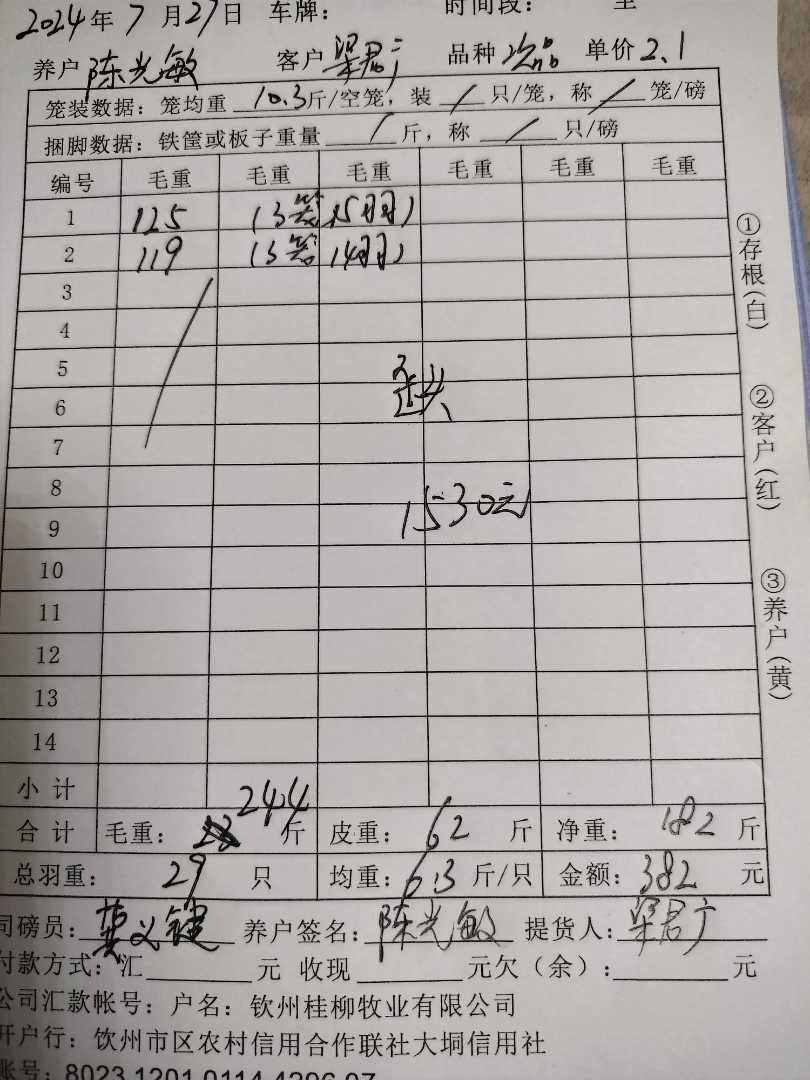 2024年 7 月 27 日 车牌： 时间段： 至
养户 陈光敏 客户 梁君广 品种 次品 单价 2.1
笼装数据：笼均重 10.3 斤/空笼，装 / 只/笼，称 / 笼/磅
捆脚数据：铁筐或板子重量 / 斤，称 / 只/磅
编号 毛重 毛重 毛重 毛重 毛重 毛重
1 125 13笼 15羽
2 119 13笼 14羽
3
4
5
6
7
8
1530元
9
10
11
12
13
14
小 计
合 计 毛重： 244 斤 皮重： 62 斤 净重： 182 斤
总羽重： 29 只 均重： 6.3 斤/只 金额： 382 元
司磅员： 养户签名： 陈光敏 提货人： 梁君广
付款方式：汇 元 收现 元欠（余）： 元
公司汇款帐号：户名：钦州桂柳牧业有限公司
开户行：钦州市区农村信用合作联社大垌信用社
账号：8023 1201 0114 4296 07
①存根（白）
②客户（红）
③养户（黄）